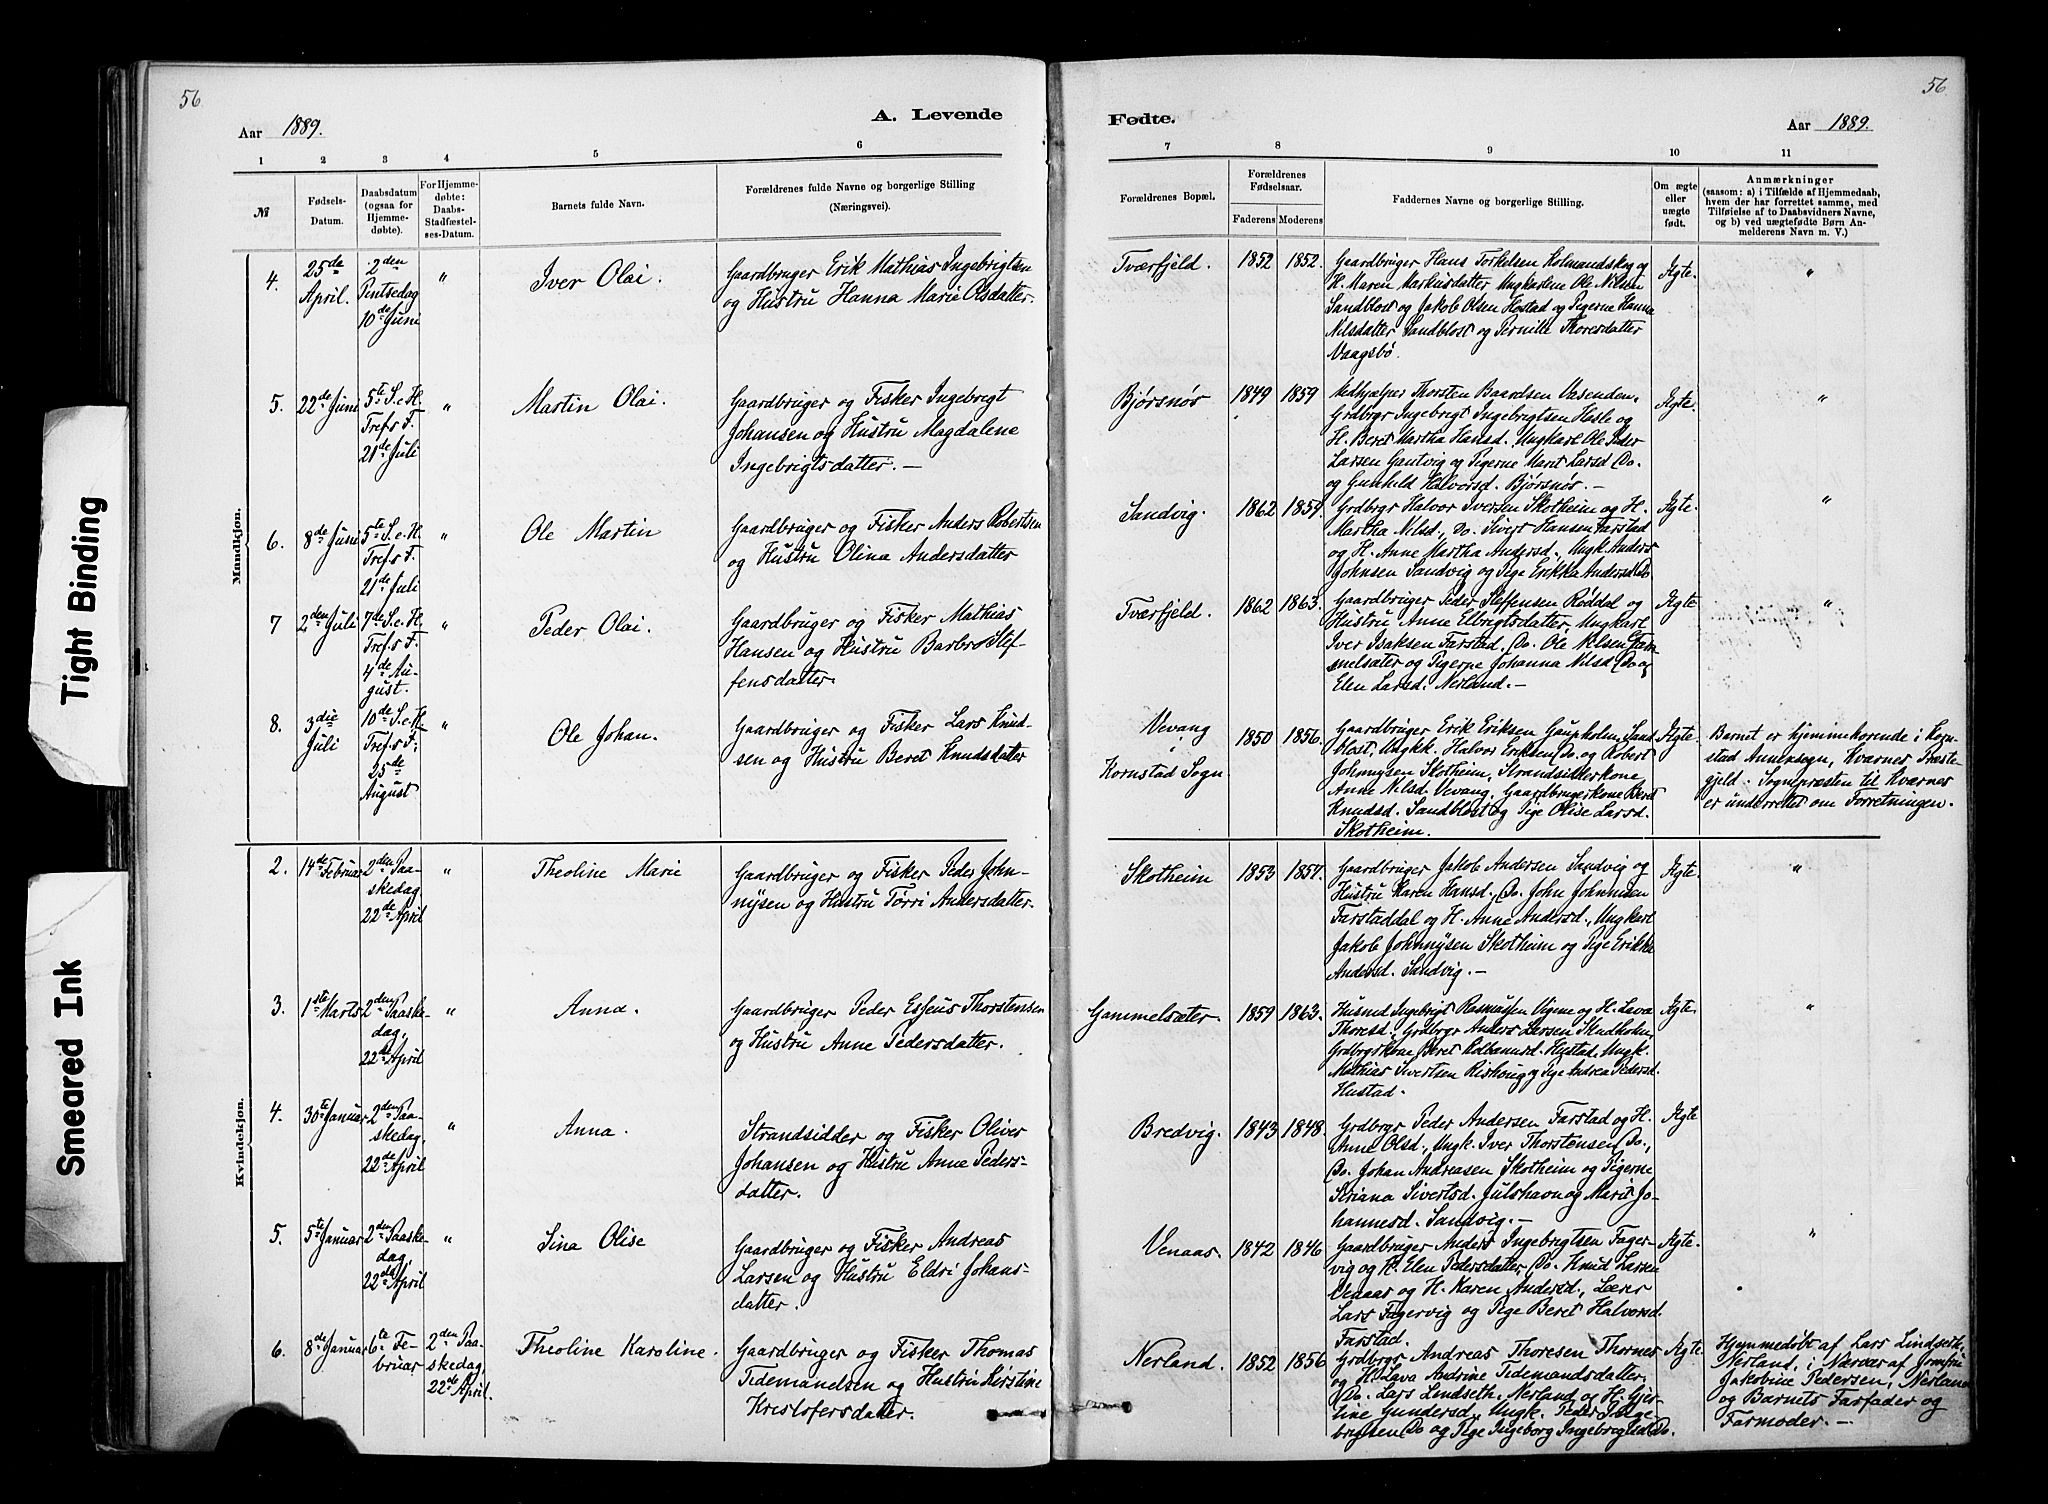 56
56
Aar 1889.
A. Levende
Fødte.
Aar 1889.
1 2 3 4 5 6 7 8 9 10 11
№
Fødsels-
Datum.
Daabsdatum
(ogsaa for
Hjemme-
døbte).
For Hjemme-
døbte:
Daabs-
Stadfæstel-
ses-Datum.
Barnets fulde Navn.
Forældrenes fulde Navne og borgerlige Stilling
(Næringsvei).
Forældrenes Bopæl.
Forældrenes
Fødselsaar.
Faderens Moderens
Faddernes Navne og borgerlige Stilling.
Om ægte
eller
uægte
født.
Anmærkninger
(saasom: a) i Tilfælde af Hjemmedaab,
hvem der har forrettet samme, med
Tilføielse af to Daabsvidners Navne,
og b) ved uægtefødte Børn An-
melderens Navn m. V.)
Mandkjøn.
4.
25de
April.
2den
Pintsedag
10de Juni
"
Iver Olai.
Gaardbruger Erik Mathias Ingebrigtsen
og Hustru Hanna Marie Olsdatter.
Tværfjeld.
1852 1852.
Gaardbruger Hans Torkelsen Holmandskog og
H. Maren Markusdatter, Ungkarlene Ole Nilsen
Sandblost og Jakob Olsen Hostad og Pigerne Hanna
Nilsdatter Sandblost og Pernille Thoresdatter
Vaagsbø.
Ægte.
"
5.
22de Juni
5te S. e. H.
Tref.s F.
21de Juli
"
Martin Olai.
Gaardbruger og Fisker Ingebregt
Johansen og Hustru Magdalene
Ingebrigtsdatter. —
Bjørsnøs
1849 1859
Medhjælper Thorsten Baardsen Vasenden,
Grdbrgr Ingebrigt Ingebrigtsen Hasle og
H. Beret Martha Hansd. Ungkarl Ole Peder
Larsen Gautvig og Pigerne Marit Larsd. Do.
og Gunhild Halvorsd. Bjørsnøs. —
Ægte.
"
6.
8de Juni
5te S. e. H.
Tref.s F.
21de Juli
"
Ole Martin
Gaardbruger og Fisker Anders Robertsen
og Hustru Olina Andersdatter
Sandvig.
1862 1859.
Grdbrgr Halvor Iversen Skotheim og H.
Martha Nilsd., Do. Sivert Hansen Farstad
og H. Anne Martha Andersd., Ungk. Anders
Johnsen Sandvig og Pige Erikka Andersd. Do.
Ægte.
"
7
2den Juli
7de S. e. H.
Tref.s F.
4de Au-
gust.
"
Peder Olai.
Gaardbruger og Fisker Mathias
Hansen og Hustru Barbro Stef-
fensdatter.
Tværfjeld.
1862 1863.
Gaardbruger Peder Steffensen Røddal og
Hustru Anne Elbrigtsdatter, Ungkarl
Iver Isaksen Farstad. Do. Ole Nilsen Gam-
melsæter og Pigerne Johanna Nilsd. Do og
Elen Larsd. Nerland. —
Ægte
"
8.
3die
Juli
10de S. e. H.
Tref.s F.
25de
August
"
Ole Johan.
Gaardbruger og Fisker Lars Knud-
sen og Hustru Beret Knudsdatter
Vevang
i
Kornstad Sogn
1850 1856.
Gaardbruger Erik Eriksen Gaupholm, Sand-
blost, Ungk. Halvor Eriksen Do. og Robert
Johnnysen Skotheim, Strandsidderkone
Anne Nilsd. Vevang, Gaardbrugerkone Beret
Knudsd. Sandblost og Pige Olise Larsd.
Skotheim.
Ægte.
Barnet er hjemmehørende i Korn-
stad Annexsogn, Kværnes Præste-
gjeld. Sognepræsten til Kværnes
er underrettet om Forretningen.
Kvindekjøn.
2.
14de Februar
2den Paa-
skedag
22de April
"
Theoline Marie
Gaardbruger og Fisker Peder John-
nysen og Hustru Tørri Andersdatter.
Skotheim
1853 1857.
Gaardbruger Jakob Andersen Sandvig og
Hustru Karen Hansd., Do. John Johnnysen
Farstaddal og H. Anne Andersd., Ungkarl
Jakob Johnnysen Skotheim og Pige Erikka
Andersd. Sandvig. —
Ægte.
"
3.
1ste Marts
2den Paaske-
dag,
22de April
"
Anna.
Gaardbruger Peder Esseus Thorstensen
og Hustru Anne Pedersdatter.
Gammelsæter.
1859 1863.
Husmd Ingebrigt Rasmussen Vigme og H. Lava
Thoresd., Grdbrgr Anders Larsen Skudholm,
Grdbrgrkone Beret Kolbeinsd. Hustad, Ungk.
Mathias Sivertsen Rishoug og Pige Andrea Pedersd.
Hustad.
Ægte.
"
4.
30te Januar
2den Paa-
skedag,
22de April
"
Anna.
Strandsidder og Fisker Oliver
Johansen og Hustru Anne Peders-
datter.
Bredvig.
1843 1848.
Grdbrgr Peder Andersen Farstad og H.
Anne Olsd., Ungk. Iver Thorstensen Do.,
Do. Johan Andreasen Skotheim og Pigerne
Seriana Sivertsd. Julshavn og Marit Jo-
hannesd. Sandvig. —
Ægte
5.
5te Januar
2den Paaske-
dag,
22de April
"
Sina Olise
Gaardbruger og Fisker Andreas
Larsen og Hustru Eldri Johans-
datter.
Venaas.
1842 1846
Gaardbruger Anders Ingebrigtsen Fager-
vig og H. Elen Pedersdatter, Do. Knud Larsen
Venaas og H. Karen Andersd., Lærer
Lars Fagervig og Pige Beret Halvorsd.
Farstad.
Ægte.
"
6.
8de Januar
6te Fe-
bruar
2den Paa-
skedag,
22de April.
Theoline Karoline.
Gaardbruger og Fisker Thomas
Tidemandsen og Hustru Kirstine
Kristofersdatter.
Nerland.
1852 1856
Grdbrgr Andreas Thoresen Thornes
og H. Lava Andrine Tidemandsdatter,
Do. Lars Lindseth, Nerland og H. Gjer-
tine Gundersd., Ungk. Peder Inge-
brigtsen Do og Pige Ingeborg Ingebrigtsd. Do.
Ægte.
Hjemmedøbt af Lars Lindseth,
Nerland, i Nærvær af Jomfru
Jakobine Pedersen, Nerland
og Barnets Farfader og
Farmoder. —
Tight Binding
Smeared Ink